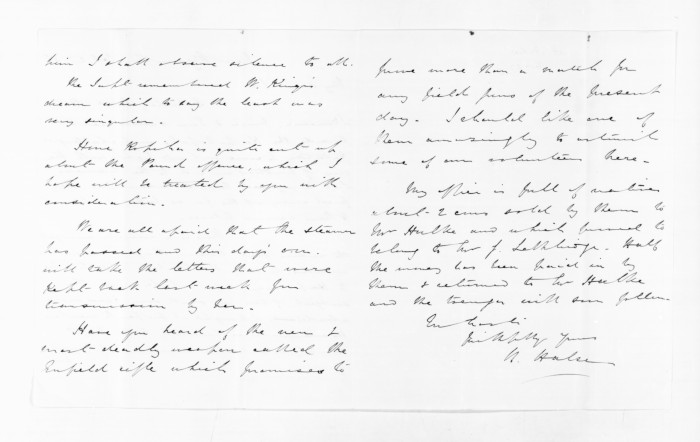 him I shall observe silence to all.
The Supt remembered W. King's
dream which to say the least was
very singular.
Hone Ropiha is quite cut up
about the Pound affair, which I
hope will be treated by you with
consideration.
We are all afraid that the steamer
has passed and this day's
will take the letters that were
kept back last week for
transmission by her.
Have you heard of the new &
most deadly weapon called the
Enfield rifle which promises to
prove more than a match for
any field guns of the present
day. I should like one of
them amazingly to astonish
some of our volunteers here.
My office is full of natives
about 2 cows sold by them to
Mr Hulke and which proved to
belong to Mr J. Lethbridge. Half
the money has been paid in by
them & returned to Mr Hulke
and the transfer will soon follow.
In haste
faithfully yours
H. Halse